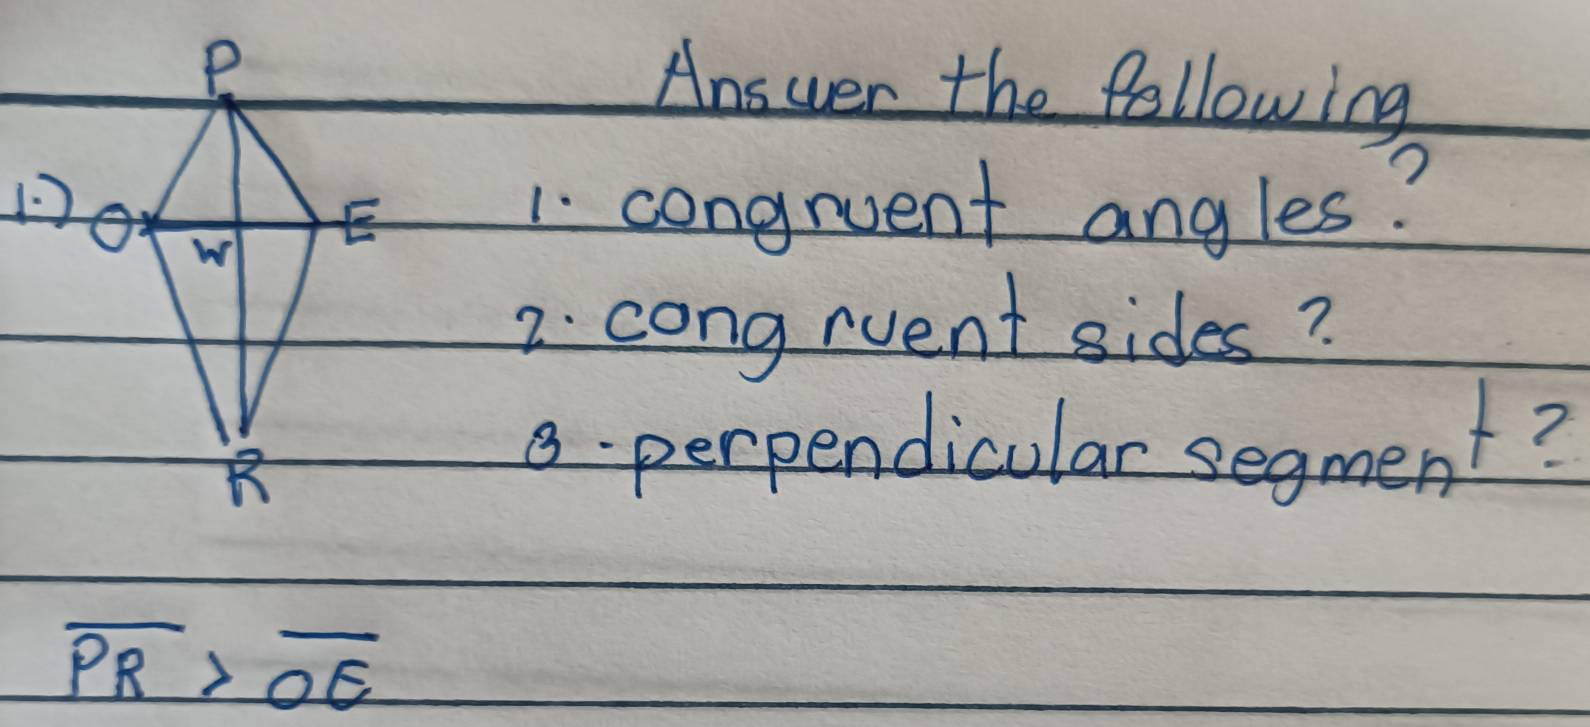 P
Answer the following
1.) O E
W
1. congruent angles?
2. congruent sides?
R
3. perpendicular segment?
PR > OE